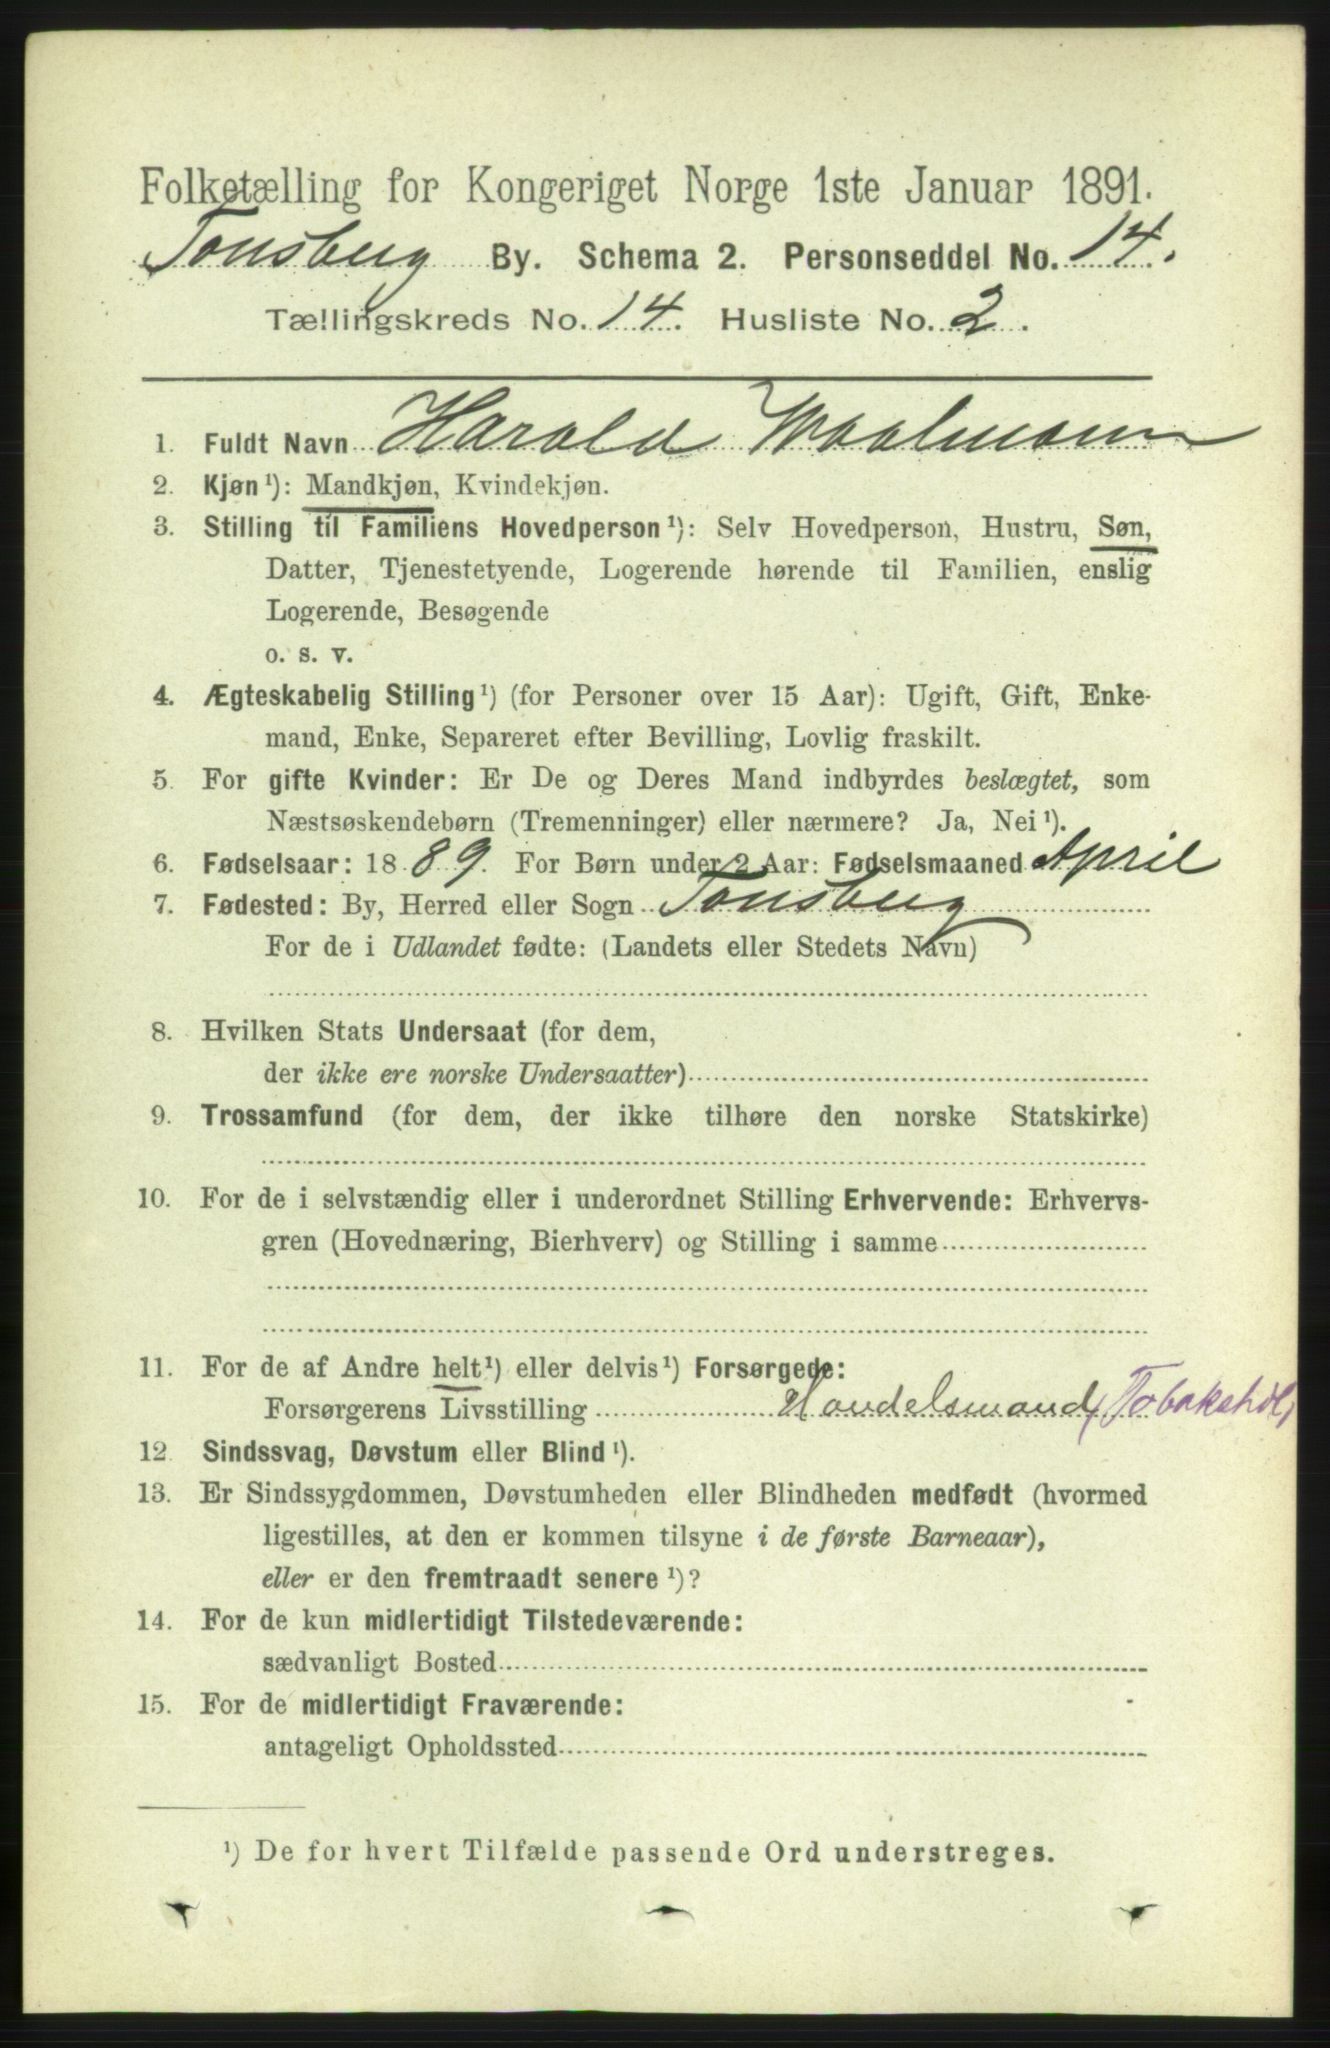 Folketælling for Kongeriget Norge 1ste Januar 1891.
Tønsberg By. Schema 2. Personseddel No. 14.
Tællingskreds No. 14. Husliste No. 2.
1. Fuldt Navn Harald Waalmann
2. Kjøn ¹): Mandkjøn, Kvindekjøn.
3. Stilling til Familiens Hovedperson ¹): Selv Hovedperson, Hustru, Søn,
Datter, Tjenestetyende, Logerende hørende til Familien, enslig
Logerende, Besøgende
o. s. v.
4. Ægteskabelig Stilling ¹) (for Personer over 15 Aar): Ugift, Gift, Enke-
mand, Enke, Separeret efter Bevilling, Lovlig fraskilt.
5. For gifte Kvinder: Er De og Deres Mand indbyrdes beslægtet, som
Næstsøskendebørn (Tremenninger) eller nærmere? Ja, Nei ¹).
6. Fødselsaar: 1889. For Børn under 2 Aar: Fødselsmaaned April
7. Fødested: By, Herred eller Sogn Tønsberg
For de i Udlandet fødte: (Landets eller Stedets Navn)
8. Hvilken Stats Undersaat (for dem,
der ikke ere norske Undersaatter)
9. Trossamfund (for dem, der ikke tilhøre den norske Statskirke)
10. For de i selvstændig eller i underordnet Stilling Erhvervende: Erhvervs-
gren (Hovednæring, Bierhverv) og Stilling i samme
11. For de af Andre helt ¹) eller delvis ¹) Forsørgede:
Forsørgerens Livsstilling Handelsmand, Tobakshdl,
12. Sindssvag, Døvstum eller Blind ¹).
13. Er Sindssygdommen, Døvstumheden eller Blindheden medfødt (hvormed
ligestilles, at den er kommen tilsyne i de første Barneaar),
eller er den fremtraadt senere ¹)?
14. For de kun midlertidigt Tilstedeværende:
sædvanligt Bosted
15. For de midlertidigt Fraværende:
antageligt Opholdssted
¹) De for hvert Tilfælde passende Ord understreges.